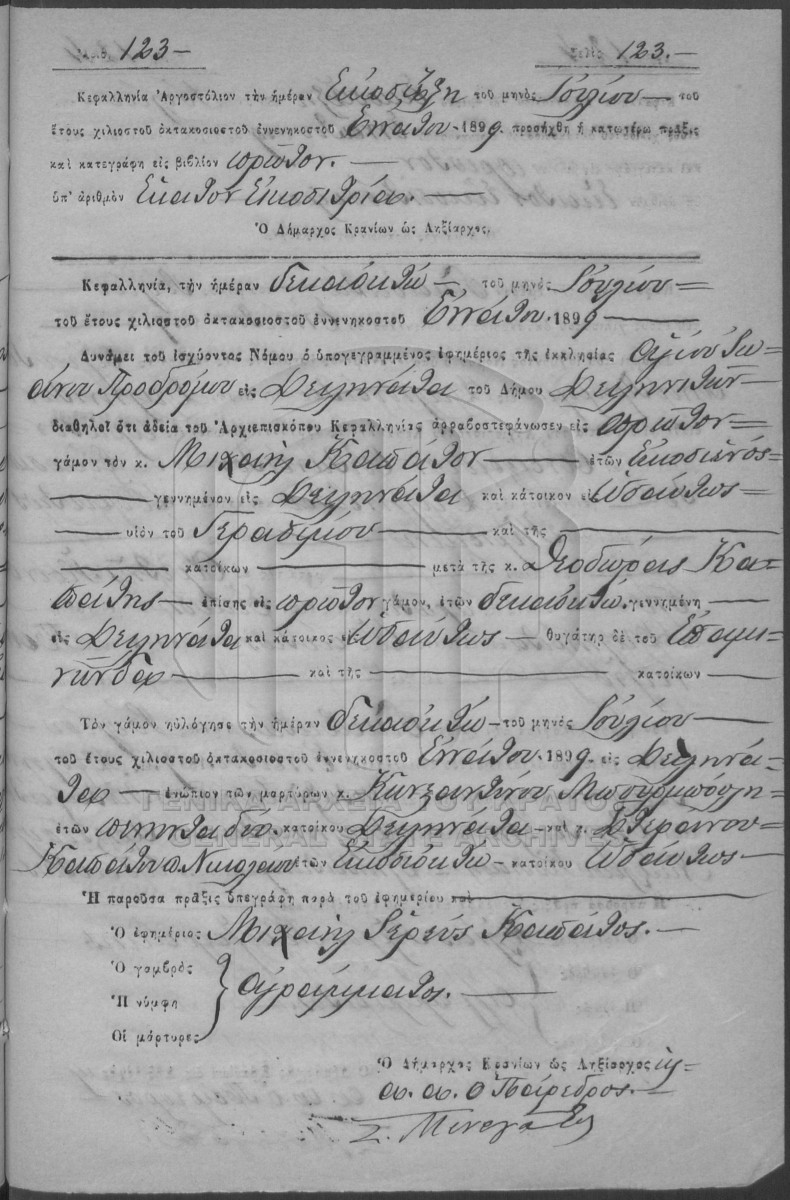 Ἀριθ. 123 — Σελὶς 123. —
Κεφαλληνία Ἀργοστόλιον τὴν ἡμέραν Εἰκοσιἕξη τοῦ μηνὸς Ἰουλίου — τοῦ
ἔτους χιλιοστοῦ ὀκτακοσιοστοῦ ἐννενηκοστοῦ Ἐννάτου 1899 προσήχθη ἡ κατωτέρω πρᾶξις
καὶ κατεγράφη εἰς βιβλίον πρῶτον. —
ὑπ' ἀριθμὸν Ἑκατὸν Εἰκοσιτρία. —
Ὁ Δήμαρχος Κρανίων ὡς Ληξίαρχος.
Κεφαλληνία, τὴν ἡμέραν δεκαοκτὼ — τοῦ μηνὸς Ἰουλίου =
τοῦ ἔτους χιλιοστοῦ ὀκτακοσιοστοῦ ἐννενηκοστοῦ Ἐννάτου. 1899 —
Δυνάμει τοῦ ἰσχύοντος Νόμου ὁ ὑπογεγραμμένος ἐφημέριος τῆς ἐκκλησίας Ἁγίου Ἰω-
άννου Προδρόμου εἰς Δειληνάτα τοῦ Δήμου Δειληνατῶν —
διαθηλοῖ ὅτι ἀδείᾳ τοῦ Ἀρχιεπισκόπου Κεφαλληνίας ἀρραβοστεφάνωσεν εἰς πρῶτον —
γάμον τὸν κ. Μιχαὴλ Καπάτον — ἐτῶν Εἰκοσιενὸς =
— γεννημένον εἰς Δειληνάτα καὶ κάτοικον εἰς ὡσαύτως =
— υἱὸν τοῦ Γερασίμου — καὶ τῆς —
— κατοίκων — μετὰ τῆς κ. Θεοδώρας Κα-
πάτης — ἐπίσης εἰς πρῶτον γάμον, ἐτῶν δεκαοκτώ. γεννημένη —
εἰς Δειληνάτα καὶ κάτοικος ὡσαύτως — θυγάτηρ δὲ τοῦ Ἐπαμι-
νώνδα — καὶ τῆς — κατοίκων —
Τὸν γάμον ηὐλόγησε τὴν ἡμέραν δεκαοκτὼ — τοῦ μηνὸς Ἰουλίου —
τοῦ ἔτους χιλιοστοῦ ὀκτακοσιοστοῦ ἐννενηκοστοῦ Ἐννάτου 1899. εἰς Δειληνά-
τα — ἐνώπιον τῶν μαρτύρων κ. Κωνσταντίνου
ἐτῶν πενήντα δύο. κατοίκου Δειληνάτα — καὶ κ. Σπεράντου —
Καπάτου Νικολάου ἐτῶν Εἰκοσιοκτὼ — κατοίκου ὡσαύτως —
Ἡ παροῦσα πρᾶξις ὑπεγράφη παρὰ τοῦ ἐφημερίου καὶ —
Ὁ ἐφημέριος Μιχαὴλ Ἱερεὺς Καπάτος. —
Ὁ γαμβρὸς
Ἡ νύμφη
Οἱ μάρτυρες
ἀγράμματοι. —
Ὁ Δήμαρχος Κρανίων ὡς Ληξίαρχος
α. α. ὁ Πάρεδρος. —
ΓΕΝΙΚΑ ΑΡΧΕΙΑ ΤΟΥ ΚΡΑΤΟΥΣ
GENERAL STATE ARCHIVES